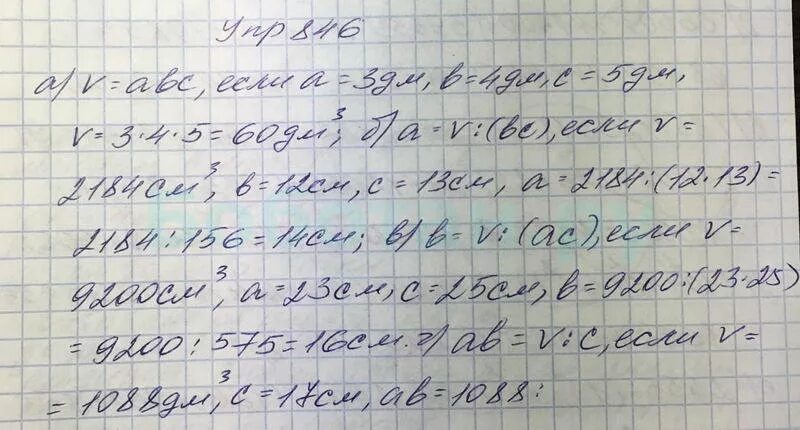 Упр 846
а) V = abc, если а = 3дм, в = 4дм, с = 5дм,
V = 3·4·5 = 60дм³; б) а = V:(bc), если V =
2184см³, в = 12см, с = 13см, а = 2184:(12·13) =
2184:156 = 14см; в) в = V:(ac), если V =
9200см³, а = 23см, с = 25см, в = 9200:(23·25)
= 9200:575 = 16см. г) ав = V:с, если V =
= 1088дм³, с = 17см, ав = 1088: